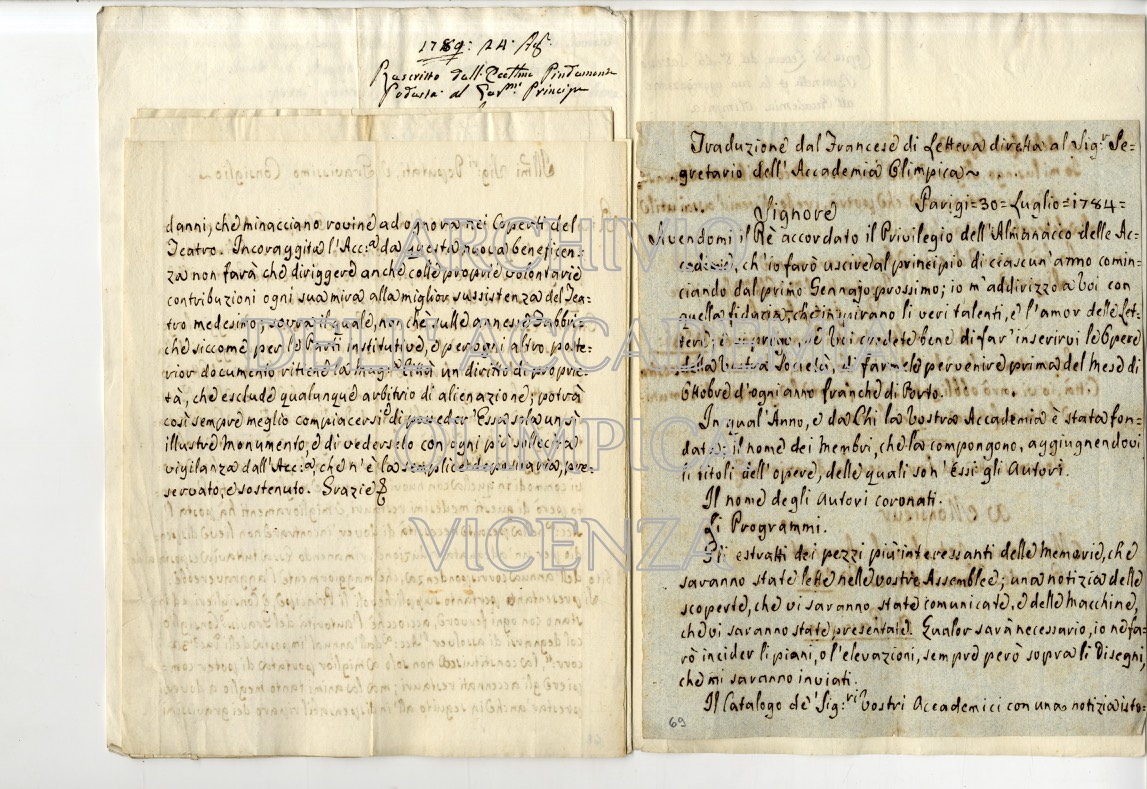 1789: 24. Ag.
Rescritto dall' Ecc.mo Pindemonte
Podestà al Ser.mo Principe
danni, che minacciano rovine ad ognora nei Coperti del
Teatro. Incoraggita l'Acc:a da questa nuova beneficen:
za non farà che diriggere anche colle proprie volontarie
contribuzioni ogni sua mira alla miglior sussistenza del Tea:
tro medesimo; sovra il quale, non che sulle annesse Fabbri:
che siccome per le Parti institutive, e per ogni altro poste:
rior documento ritiene la mag:ca Città un diritto di proprie:
tà, che esclude qualunque arbitrio di alienazione; potrà
così sempre meglio compiacersi e di posseder Essa sola un sì
illustre monumento, e di vederselo con ogni più sollecita
vigilanza dall'Acc:a, che n'è la semplice depositaria, pre:
servato, e sostenuto. Grazie
Traduzione dal Francese di Lettera diretta al Sig:r Se:
gretario dell'Accademia Olimpica~
Parigi=30=Luglio=1784=
Signore
Avendomi il Rè accordato il Privilegio dell'Almanacco delle Ac:
cademie, ch'io farò uscire al principio di ciascun'anno comin:
ciando dal primo Gennajo prossimo; io m'addirizzo a Voi con
quella fiducia, che inspirano li veri talenti, e l'amor delle Let:
tere; e vi prego, se Voi credete bene di far'inserirvi le Opere
della vostra Società, di farmele pervenire prima del Mese di
Ottobre d'ogni anno franche di Porto.
In qual'Anno, e da Chi la vostra Accademia è stata fon:
data; il nome dei Membri, che la compongono, aggiugnendovi
li titoli dell'opere, delle quali son'Essi gli Autori.
Il nome degli Autori coronati.
Li Programmi.
Gli estratti dei pezzi più interessanti delle Memorie, che
saranno state lette nelle vostre Assemblee; una notizia delle
scoperte, che vi saranno state comunicate, e delle Macchine,
che vi saranno state presentate. Qualor sarà necessario, io ne fa:
rò incider li piani, o l'elevazioni, sempre però sopra li Disegni,
che mi saranno inviati.
Il Catalogo de' Sig:ri Vostri Accademici con una notizia isto:
69
ARCHIVIO
DELL'ACCADEMIA
OLIMPICA
VICENZA